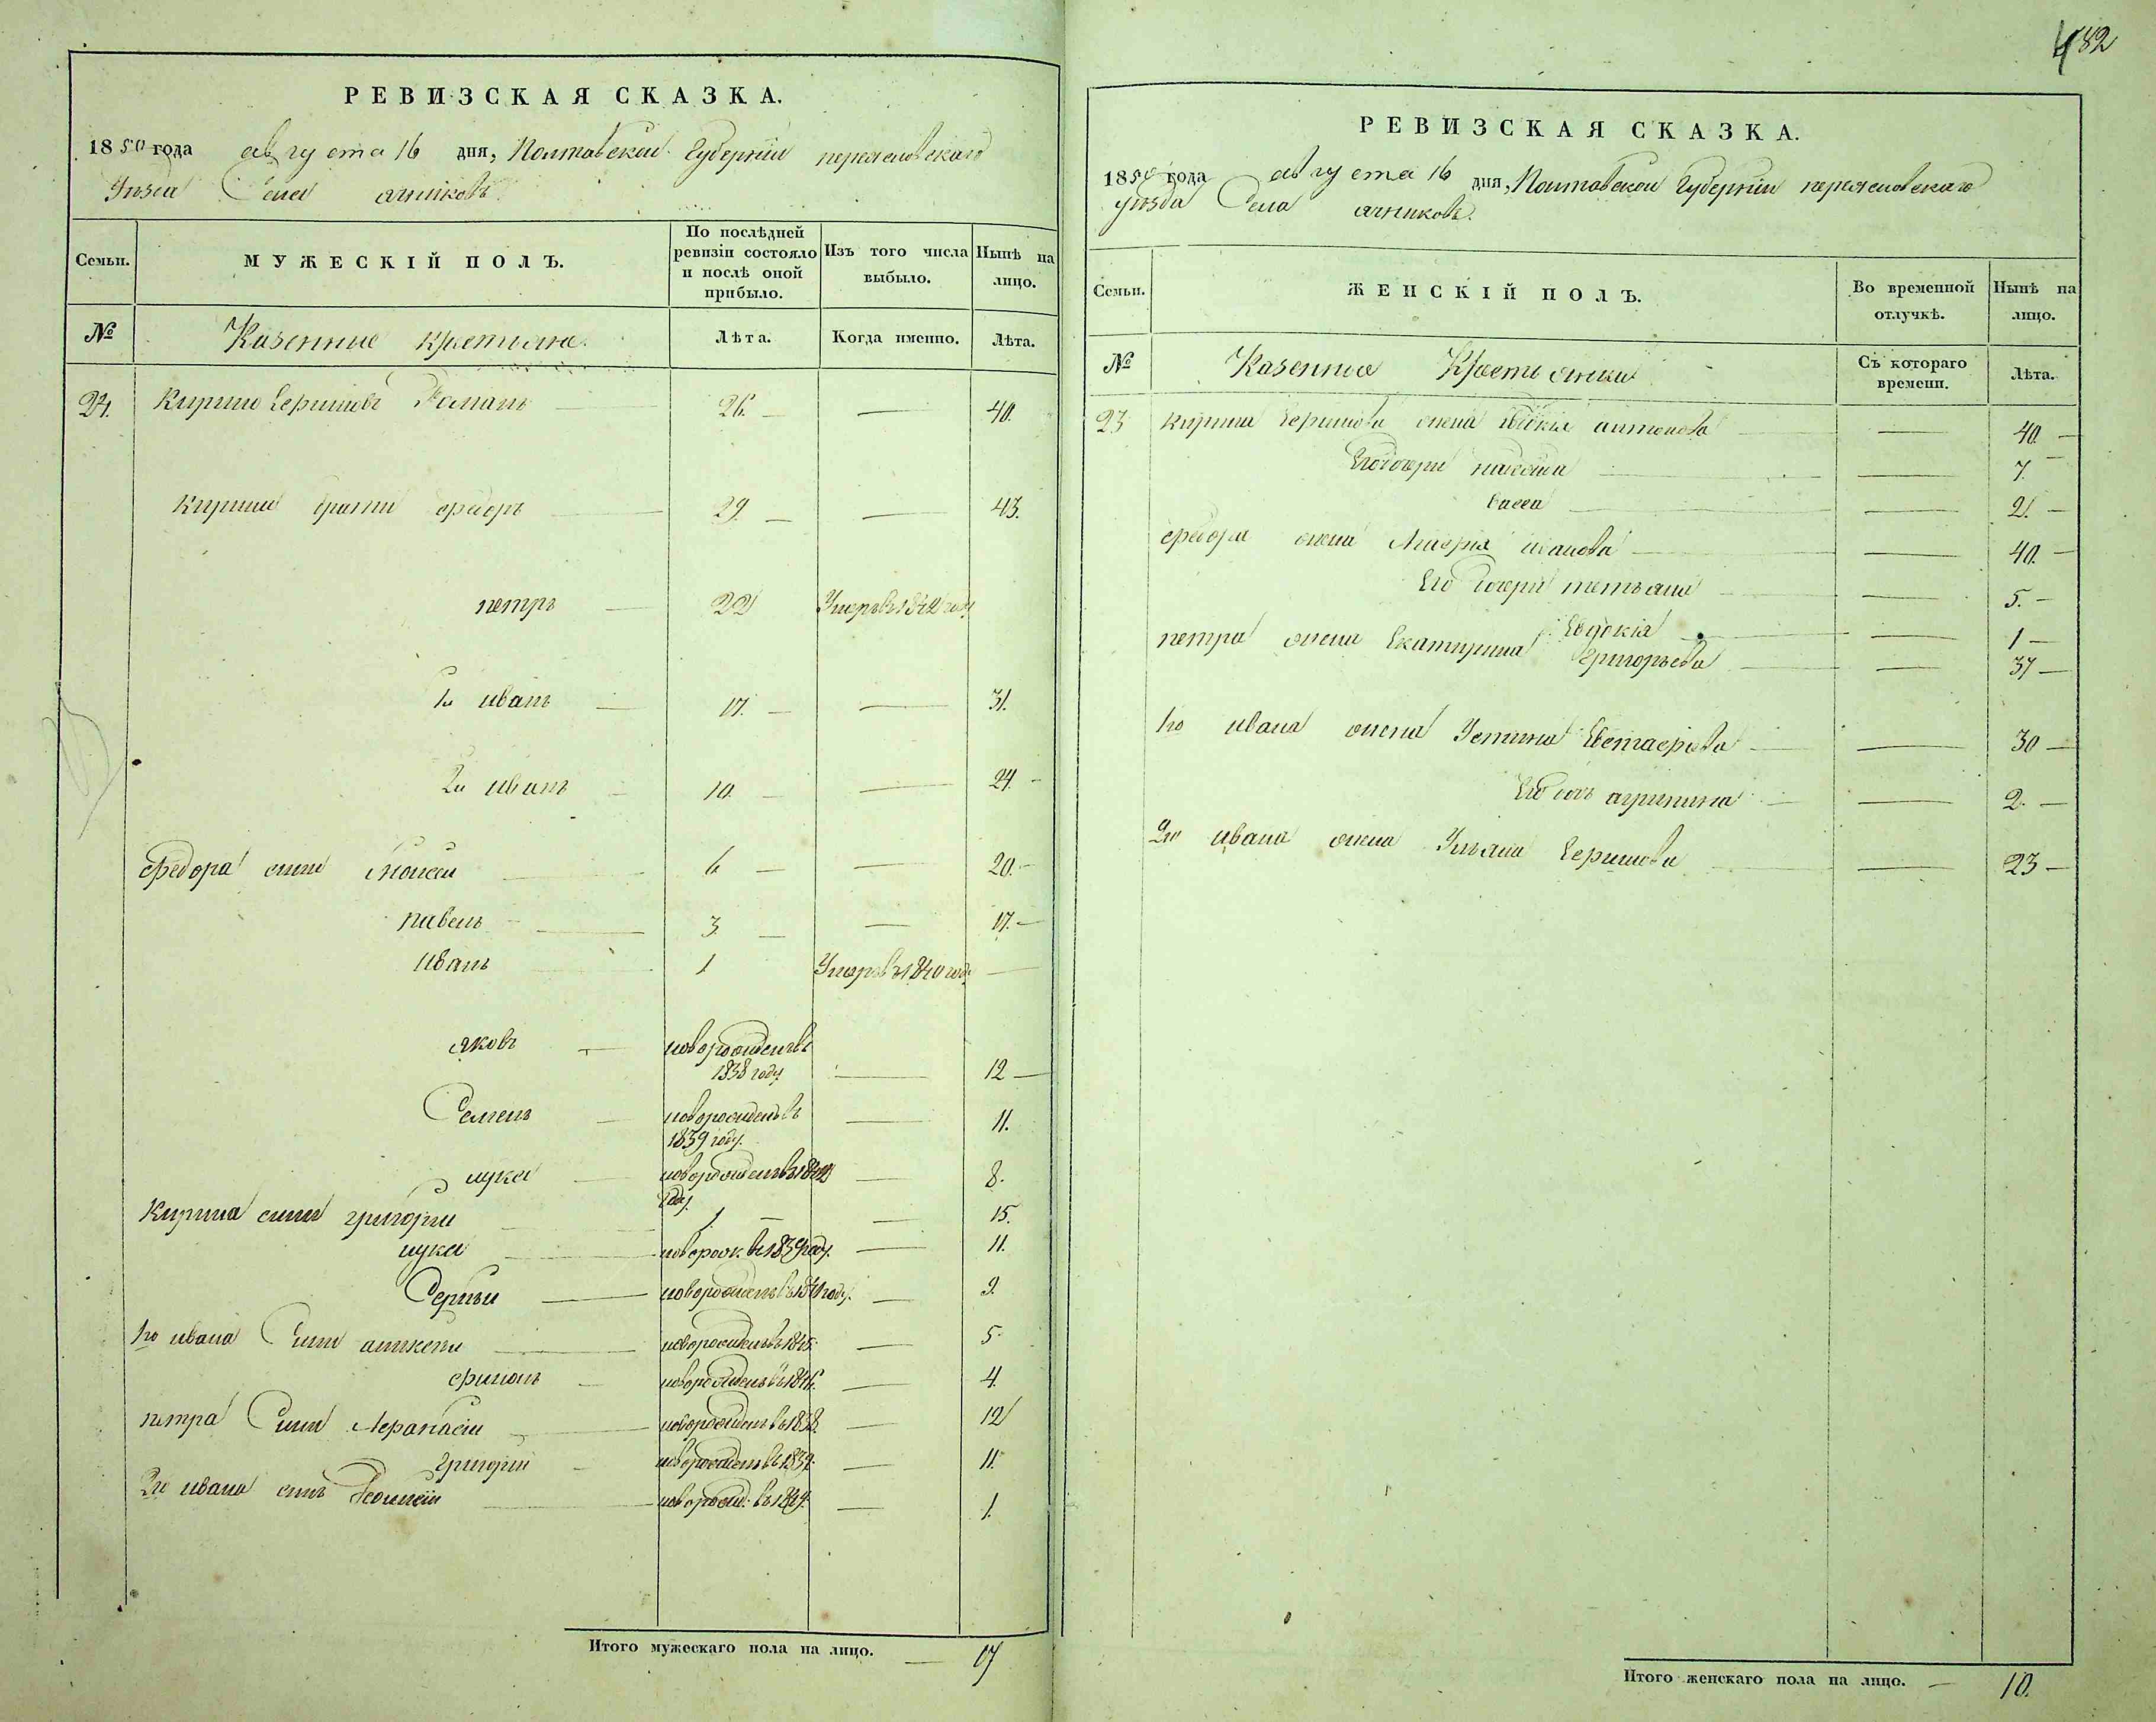 482
РЕВИЗСКАЯ СКАЗКА.
1850 года августа 16 дня, Полтавской Губерніи переяславскаго
Уѣзда Села
Семьи.
МУЖЕСКІЙ ПОЛЪ.
По послѣдней ревизіи состояло и послѣ оной прибыло.
Изъ того числа выбыло.
Нынѣ на лицо.
№
Казенные крестьяне.
Лѣта.
Когда именно.
Лѣта.
24. Кирило 26. — — 40.
Кирила братья федоръ — 29. — — 43.
петръ — 22 Умеръ въ 1842 году
1й иванъ — 17. — — 31.
2й иванъ — 10. — — 24. —
Федора сыны Моисей — 6 — — 20. —
павелъ — 3. — — 17. —
Иванъ — 1 Умеръ въ 1840 году —
яковъ — новорожденъ въ 1838 году — 12 —
Семенъ — новорожденъ въ 1839 году. — 11.
лука — новорожденъ въ 1842 году. — 8.
Кирила сыны григорій — 1. — — 15.
лука — новорож. въ 1839 году. — 11.
Сергѣй — новорожденъ въ 1841 году. — 9.
1го ивана Сыны — новорожденъ въ 1845. — 5.
— новорожденъ въ 1846. — 4.
петра Сыны Афанасій — новорожденъ въ 1838. — 12
григорій — новорожденъ въ 1839. — 11.
2го ивана сынъ — новорожд: въ 1849. — 1.
Итого мужескаго пола на лицо. — 17
РЕВИЗСКАЯ СКАЗКА.
1850 года августа 16 дня, Полтавской Губерніи переяславскаго
уѣзда Села
Семьи.
ЖЕНСКІЙ ПОЛЪ.
Во временной отлучкѣ.
Нынѣ на лицо.
№
Казенные Крестьянки
Съ котораго времени.
Лѣта.
23 кирила жена антонова — — 40. —
Его дочери — — 7. —
васса — — 2. —
федора жена Марія иванова — — 40. —
Его дочери татьяна — — 5. —
Евдокія — — 1 —
петра жена Екатерина Григорьева — — 37 —
1го ивана жена Устина Евстафіева — — 30 —
Его дочь агрипина — — 2. —
2го ивана жена Ульяна — — 23 —
Итого женскаго пола на лицо. — 10.